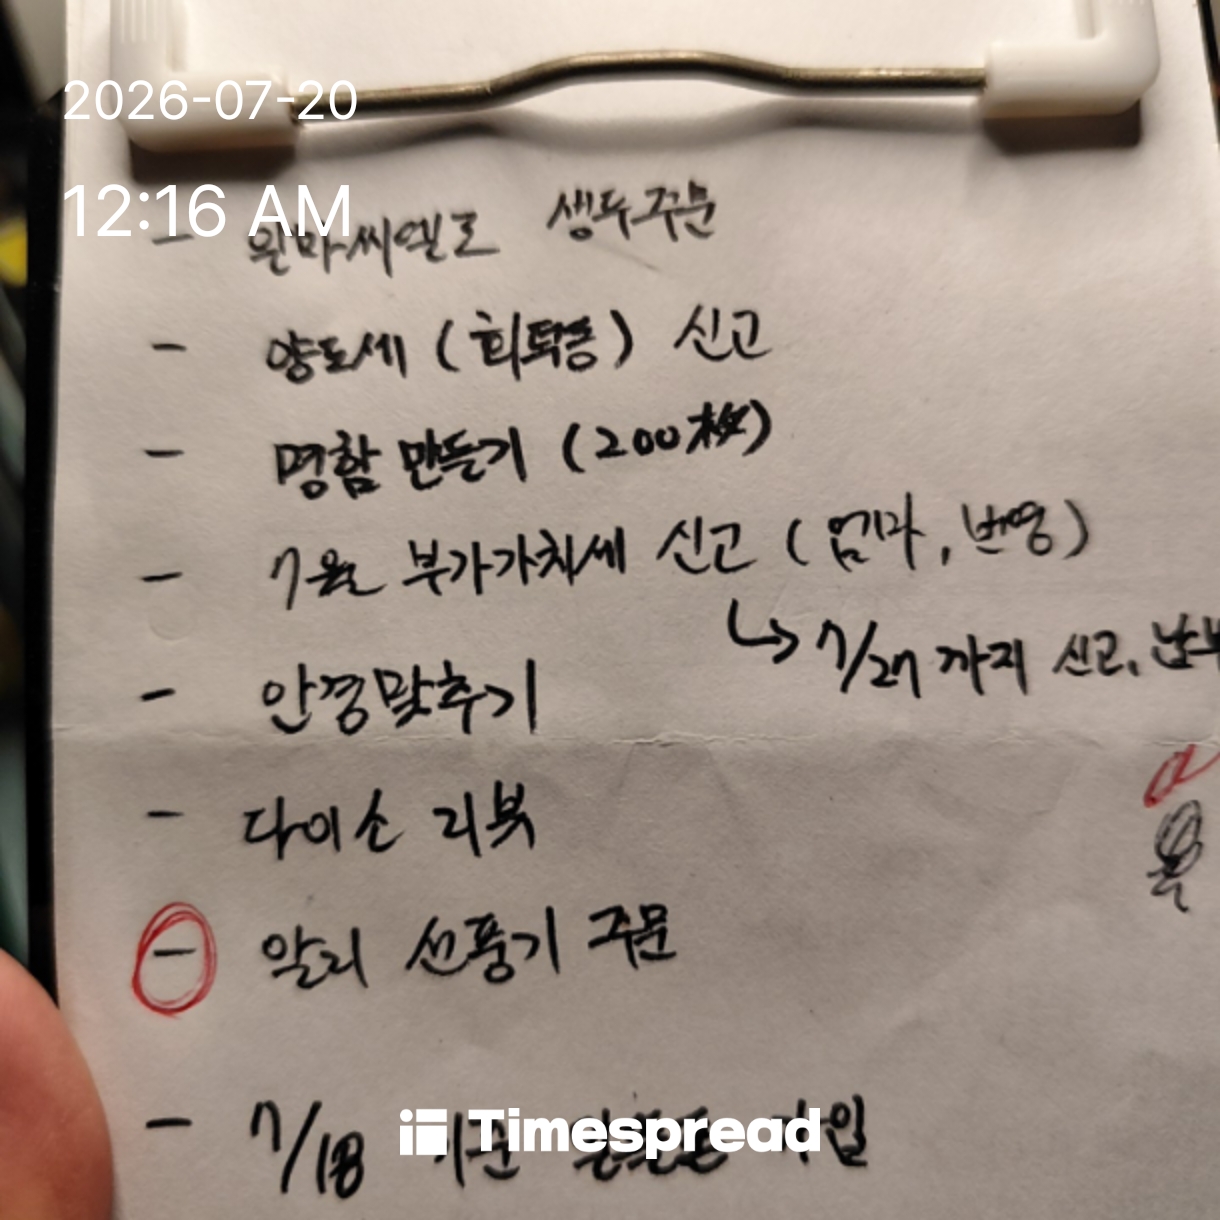 2026-07-20
12:16 AM
- 원마씨엘로 생두주문
- 양도세 (회퇴동) 신고
- 명함 만들기 (200枚)
- 7월 부가가치세 신고 (엄마, 번영)
↳ 7/27까지 신고, 납부
- 안경맞추기
- 다이소 리뷰
- 알리 선풍기 주문
- 7/18 기준
Timespread